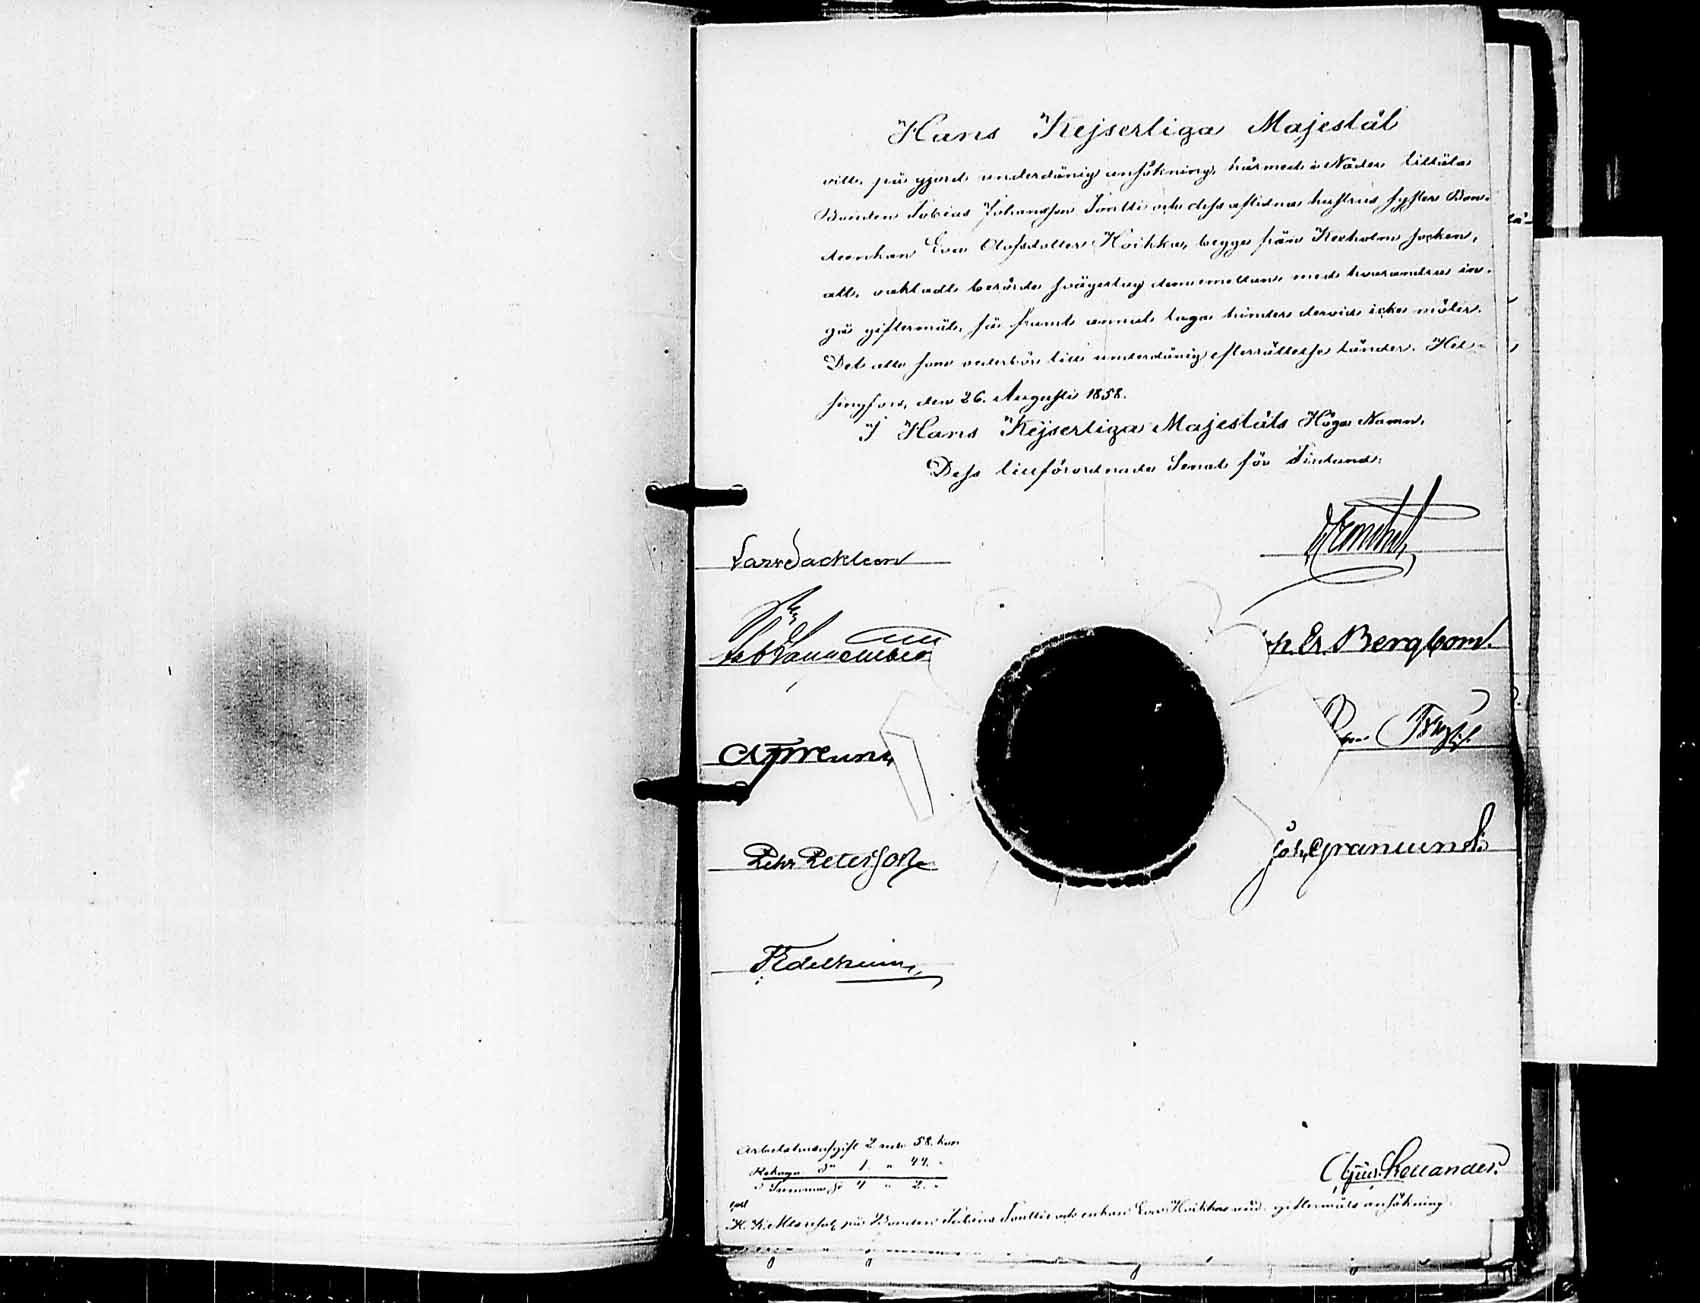 Hans Kejserliga Majestät
vill, på gjord underdånig ansökning, härmed i Nåder tillåta
Bonden Tobias Johansson Tontti och dess aflidna hustrus syster Bon-
deenkan Eva Olofsdotter Hoikka, begge från Kexholms socken,
att, oaktadt berörde svågerlag dememellan, med hvarandra in-
gå giftermål, så framt annat laga hinder dervid icke möter.
Det alle som vederbör till underdånig efterrättelse länder. Hel-
singfors, den 26. Augusti 1858.
I Hans Kejserliga Majestäts Höga Namn,
Dess tillförordnade Senat för Finland:
Lars Sackleen
Joh. Er. Bergbom.
Pehr Peterson
Joh. Granlund.
F Edelheim
58. kop.
1. " 44. "
Summa S:r 4 " 2. "
K. K. M:ts på Bonden Tobias Tontti och enkan Eva Hoikkas und. giftermåls ansökning.